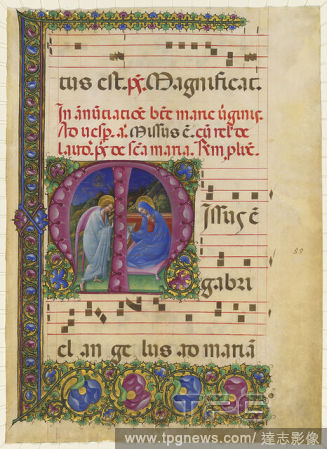 tus est. ps. Magnificat.
In ānūciatiōe bt̄e marie ūginis.
Ad uesp. a. Missus ē. cū rel. de
laud. ps. de sc̄a maria.
issus ē
gabri
el an ge lus ad mariā
89
TPG
www.tpgnews.com/ 達志影像